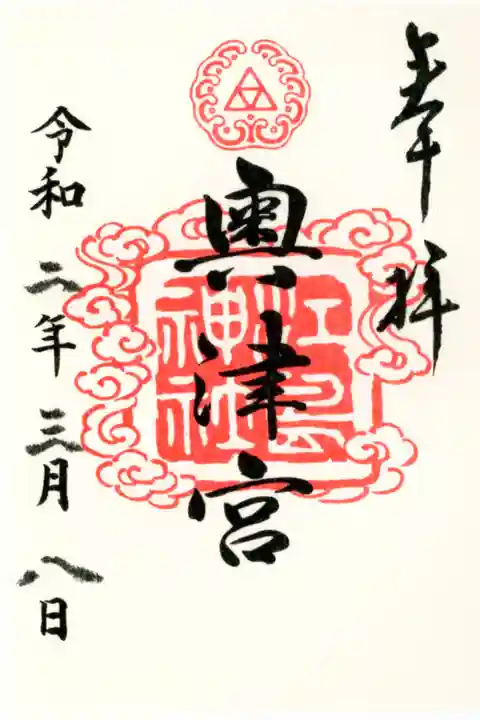 奉拝
奥津宮
江島神社
令和二年三月八日